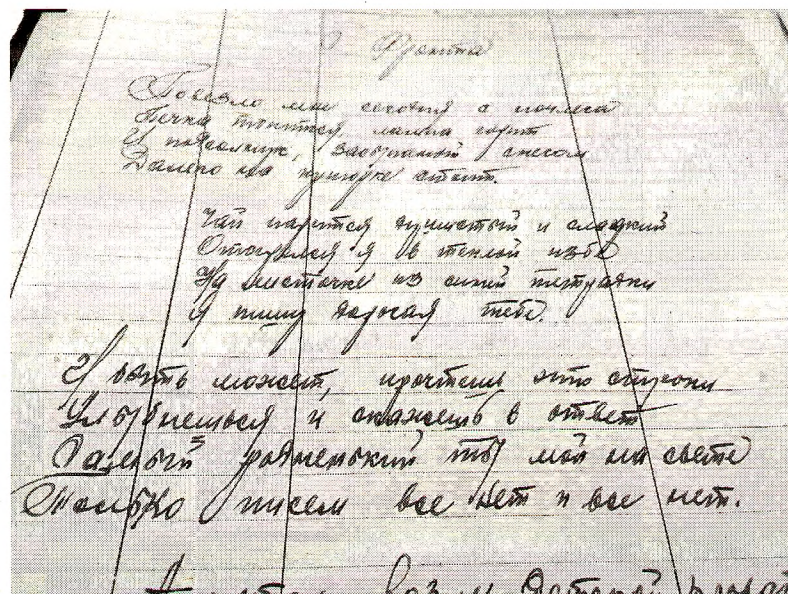 С фронта
Повезло мне сегодня с ночлега
Печка топится, лампа горит
И подсолнух, засыпанный снегом
Далеко на пригорке стоит.
Чай парится душистый и сладкий
Отогрелся я в теплой избе
На листочке из синей тетрадки
Я пишу дорогая тебе.
И быть может, прочтешь эти строки
Улыбнешься и скажешь в ответ
родненький ты мой на свете
Только писем все нет и все нет.